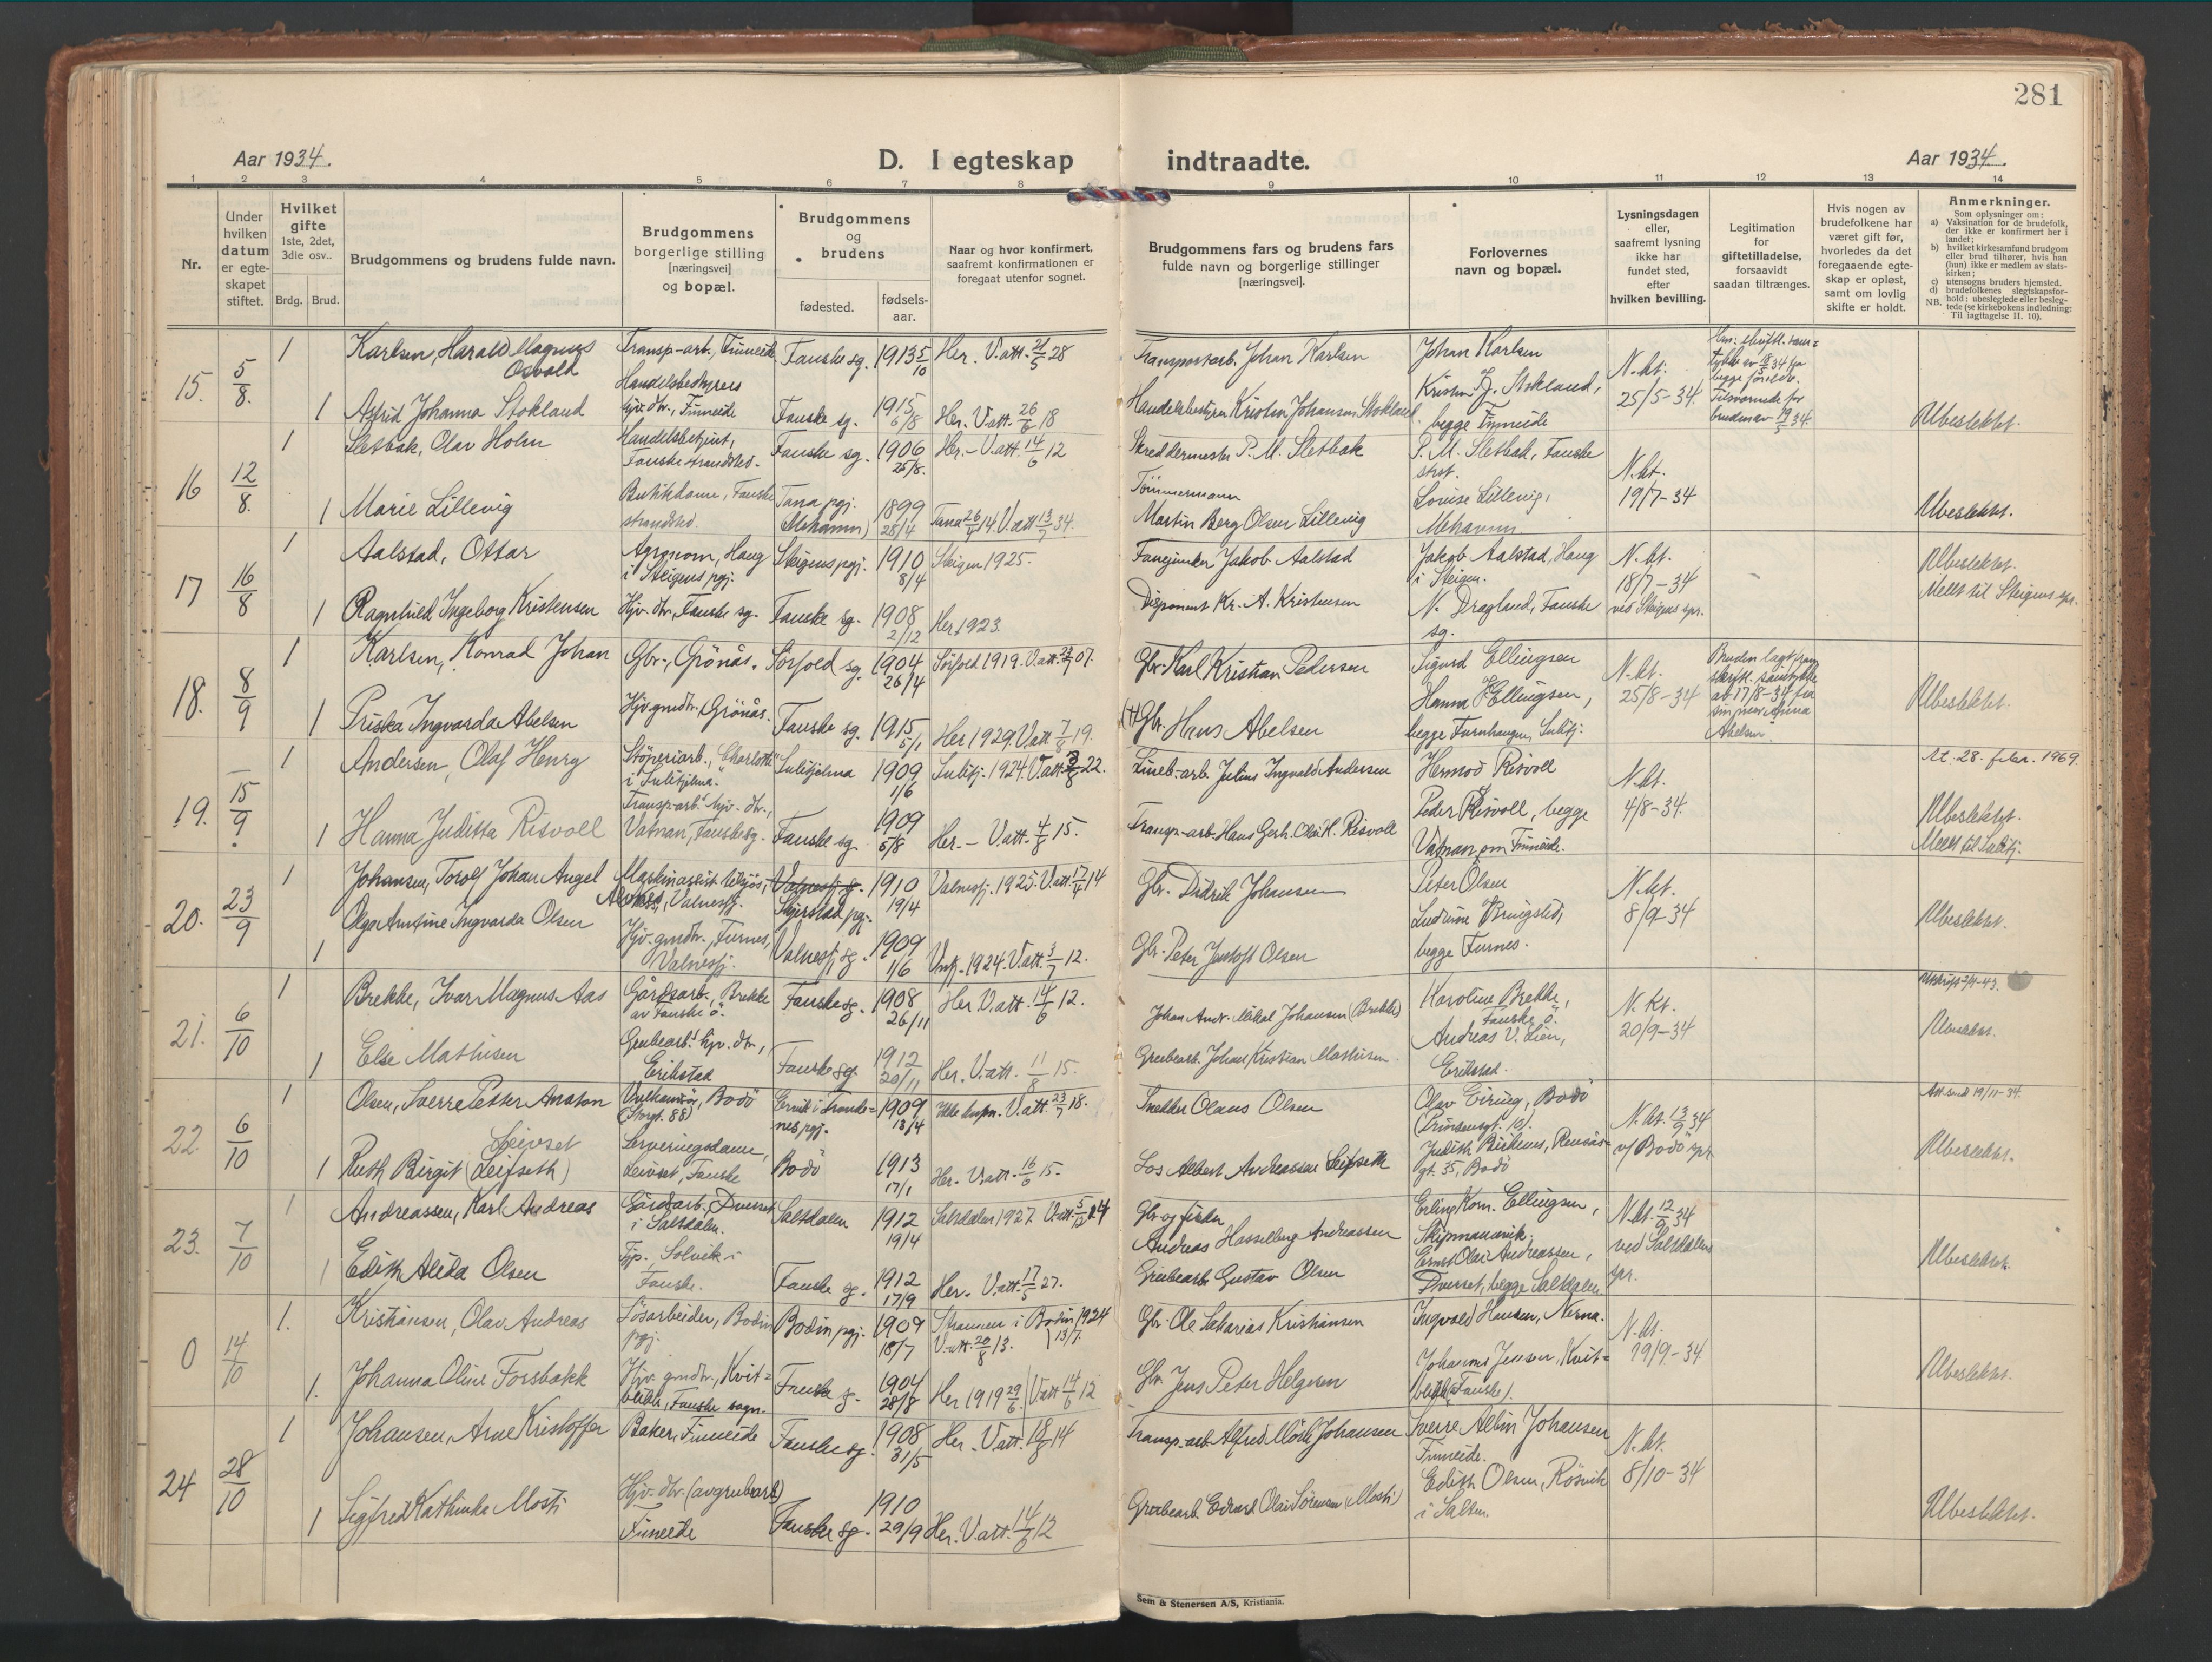 281
Aar 1934.
D. I egteskap indtraadte.
Aar 1934.
1 2 3 4 5 6 7 8 9 10 11 12 13 14
Nr.
Under hvilken datum er egteskapet stiftet.
Hvilket gifte
1ste, 2det, 3die osv..
Brdg. Brud.
Brudgommens og brudens fulde navn.
Brudgommens borgerlige stilling [næringsvei] og bopæl.
Brudgommens og brudens
fødested.
fødselsaar.
Naar og hvor konfirmert, saafremt konfirmationen er foregaat utenfor sognet.
Brudgommens fars og brudens fars fulde navn og borgerlige stillinger [næringsvei].
Forlovernes navn og bopæl.
Lysningsdagen eller, saafremt lysning ikke har fundet sted, efter hvilken bevilling.
Legitimation for giftetilladelse, forsaavidt saadan tiltrænges.
Hvis nogen av brudefolkene har været gift før, hvorledes da det foregaaende egteskap er opløst, samt om lovlig skifte er holdt.
Anmerkninger.
Som oplysninger om:
a) Vaksination for de brudefolk, der ikke er konfirmert her i landet;
b) hvilket kirkesamfund brudgom eller brud tilhører, hvis han (hun) ikke er medlem av statskirken;
c) utensogns bruders hjemsted.
d) brudefolkenes slegtskapsforhold: ubeslegtede eller beslegtede (se kirkebokens indledning: Til iagttagelse II. 10).
NB.
15. 5/8.
1 Karlsen, Harald Magnus Osvald
Transp-arb., Finneide
Fauske sg. 1913 5/10
Her. V.att. 21/5 28
Transportarb. Johan Karlsen
Johan Karlsen
N. kt. 25/5-34.
1 Astrid Johanna Stokland
Handelsbestyrers hjv. dtr., Finneide
Fauske sg. 1915 6/8
Her. V.att. 26/6 18
Handelsbestyrer Kristen Johansen Stokland
Kristen J. Stokland, begge Finneide
Ubeslektet.
16 12/8.
1 Sletbak, Olav Holm
Handelsbetjent, Fauske strandsted.
Fauske sg. 1906 25/8.
Her. - V.att. 14/6 12
Skreddermester P. M. Sletbak
P. M. Sletbak, Fauske strst.
N. kt. 19/7-34
1 Marie Lillevig
Butikdame, Fauske strandsted.
Tana pgj. (Mehamn) 1899 28/4
Tana 26/4 14 V.att 13/7 34.
Tömmermann Martin Berg Olsen Lillevig
Lovise Lillevig, Mehamn
Ubeslektet.
17 16/8
1 Aalstad, Ottar
Agronom, Haug i Steigens pgj.
Steigens pgj. 1910 8/4
Steigen 1925.
Fanejunker Jakob Aalstad
Jakob Aalstad, Haug i Steigen.
N. kt. 18/7-34 ved Steigens spr.
Ubeslektet.
Meldt til Steigens spr.
1 Ragnhild Ingeborg Kristensen
Hjv. dtr., Fauske sg.
Fauske sg. 1908 2/12
Her, 1923.
Disponent Kr. A. Kristensen
N. Dragland, Fauske sg.
18. 8/9
1 Karlsen, Konrad Johan
Gbr., Grönås.
Sørfold sg. 1904 26/4
Sørfold 1919. V.att. 07.
Gbr. Karl Kristian Pedersen
Sigurd Ellingsen
N. kt. 25/8-34
Bruden lagt fram skriftl. samtykke av 17/8-34 fra sin mor Anna Abelsen
1 Priska Ingvarda Abelsen
Hjv. gmdtr., Grönås.
Fauske sg. 1915 5/1
Her 1929. V.att 7/8 19.
(+) Gbr. Hans Abelsen
Hanna Ellingsen, begge Furuhaugen, Sulitj.
Ubeslektet.
19. 15/9
1 Andersen, Olaf Henry
Støperiarb., "Charlotte" i Sulitjelma.
Sulitjelma 1909 1/6
Sulitj. 1924. V.att. 3/8 22.
Lineb.-arb. Julius Ingvald Andersen
Hermod Risvoll
N. kt. 4/8-34.
At. 28. febr. 1969.
1 Hanna Juditta Risvoll
Transp.-arb.s hjv. dtr., Vatnan, Fauske sg.
Fauske sg. 1909 5/8
Her. - V.att. 4/8 15.
Transp-arb. Hans Gerh. Olai H. Risvoll
Peder Risvoll, begge Vatnan om Finneide.
Ubeslektet.
Meldt til Sulitj.
20. 23/9
1 Johansen, Torolf Johan Angel
Valnesfj.
Valnesfj. sg. Skjerstad pgj. 1910 19/4
Valnesfj. 1925. V.att 17/4 14
Gbr. Didrik Johansen
Peter Olsen
N. kt. 8/9-34
1 Olga Arntine Ingvarda Olsen
Hjv. gmdtr., Furnes, Valnesfj.
Valnesfj. sg. 1909 1/6
Vnfj. 1924. V.att 3/7 12.
Gbr. Peter Jentoft Olsen
begge Furnes.
Ubeslektet.
21. 6/10
1 Brekke, Ivar Magnus Aas
Gårdsarb., Brekke av Fauske ö.
Fauske sg. 1908 26/11
Her. V.att. 14/6 12.
Johan Andr. Mikal Johansen (Brekke)
Karoline Brekke, Fauske ö.
N. kt. 20/9-34
1 Else Mathisen
Grubearb.s hjv. dtr., Erikstad
Fauske sg. 1912 20/11
Her. V.att. 11/8 15.
Grubearb. Johan Kristian Mathisen
Andreas V. Lien, Erikstad.
Ubeslektet.
22. 6/10
1 Olsen, Sverre Petter Anaton
Bodö (Storgt. 88)
1909 13/4
Ikke konfn. V.att. 23/7 18.
Snekker Olaus Olsen
Olav Eiring, Bodö (Prinsensgt. 101).
N. kt. 13/9 34 v/ Bodö spr.
Att. sendt 19/11-34.
1 Ruth Birgit (Leifseth) Leivset
Serveringsdame, Leivset, Fauske
Bodö 1913 17/1
Her. V.att. 16/6 15.
Los Albert Andreassen Leifseth
Judith Birkenes, gt. 35, Bodö
Ubeslektet.
23. 7/10
1 Andreassen, Karl Andreas
Gårdsarb., Dverset i Saltdalen.
Saltdalen 1912 19/4
Saltdalen 1927. V.att. 5/12 24
Gbr og fisker Andreas Hasselberg Andreassen
Erling Korn. Ellingsen, Skipmannvik.
N. kt. 12/9 34 ved Saltdalens spr.
1 Edith Alida Olsen
Tjp. Solvik i Fauske.
Fauske sg. 1912 17/9
Her. V.att. 17/5 27.
Grubearb. Gustav Olsen
Ernst Olai Andreassen, Dverset, begge Saltdalen
Ubeslektet.
0 14/10
1. Kristiansen, Olav Andreas
Løsarbeider, Bodin pgj.
Bodin pgj. 1909 18/7
Straumen i Bodin 1924 13/7. V.att. 20/8 13.
Gbr. Ole Sakarias Kristiansen
Ingvald Hansen, Nerna.
N. kt. 19/9-34
1. Johanna Oline Forsbakk
Hjv. gmdtr., Kvitblikk, Fauske sogn.
Fauske sg. 1904 28/8
Her 1919 29/6. V.att 14/6 12
Gbr. Jens Peter Helgesen
Johannes Jensen, Kvitblikk (Fauske).
Ubeslektet.
24 28/10
1 Johansen, Arne Kristoffer
Baker, Finneide
Fauske sg. 1908 31/5
Her. V.att. 18/8 14
Transp-arb. Alfred Johansen
Sverre Albin Johansen Finneide.
N. kt. 8/10-34
1 Sigfred Kathinka Mosti
Hjv. dtr. (av grubearb.) Finneide
Fauske sg. 1910 29/9
Her. V.att. 14/6 12
Grubearb. Edvard Olai Sörensen (Mosti)
Edith Olsen, Rösvik i Salten.
Ubeslektet.
Sem & Stenersen A/S, Kristiania.